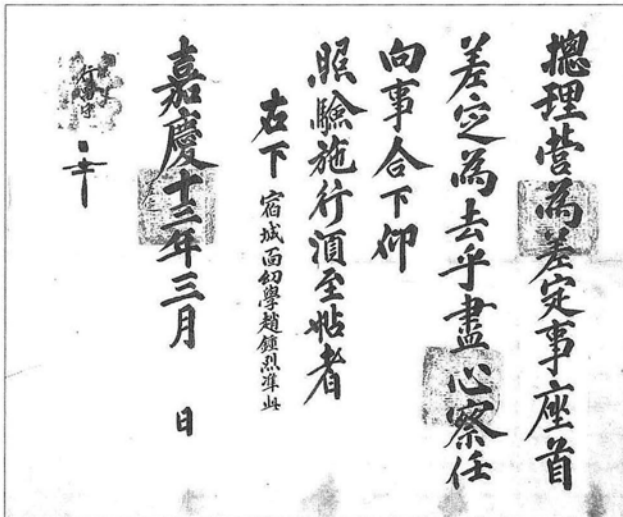 摠理營為差定事座首
差定為去乎盡心察任
向事合下仰
照驗施行湏至帖者
右下 宿城面幼學趙鍾烈準此
嘉慶十三年三月 日